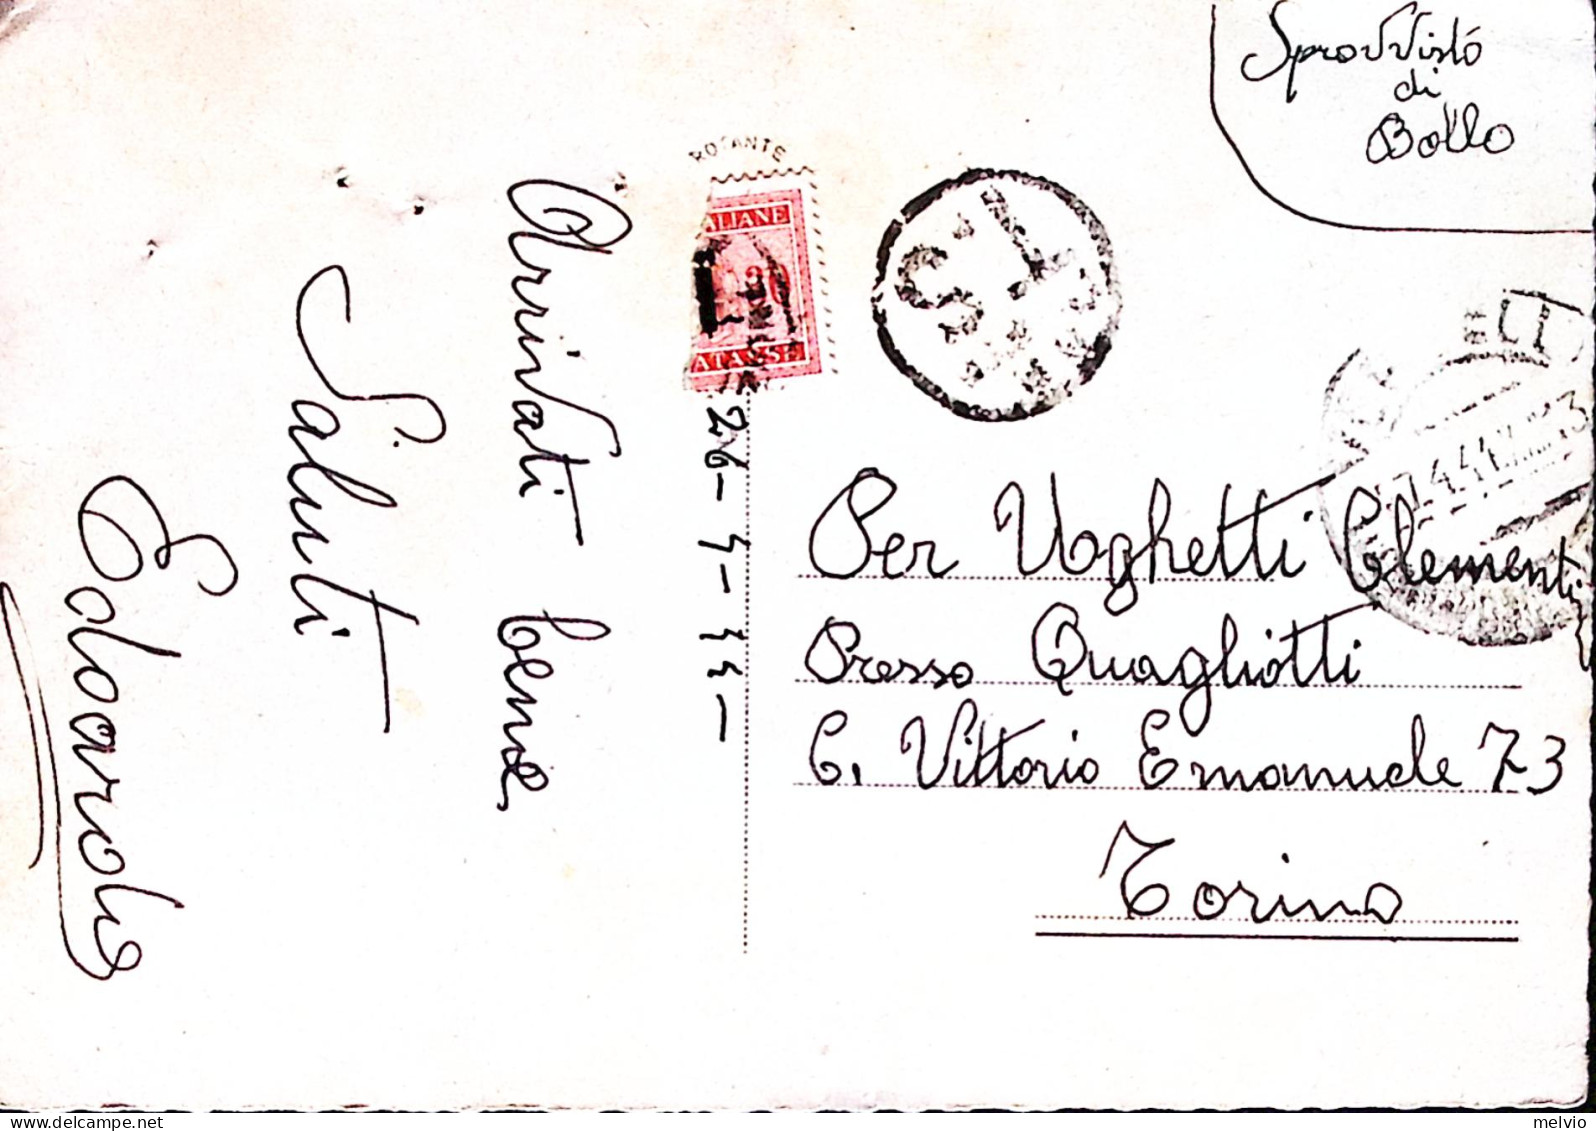 Sprovvisto
di
Bollo
ROTANTE
ALIANE
30
ATASSE
T.S.
7.4.44
26-4-44-
Arrivati bene
Saluti
Edoardo
Per Ughetti Clementi
Presso Quagliotti
C. Vittorio Emanuele 73
Torino
melvio